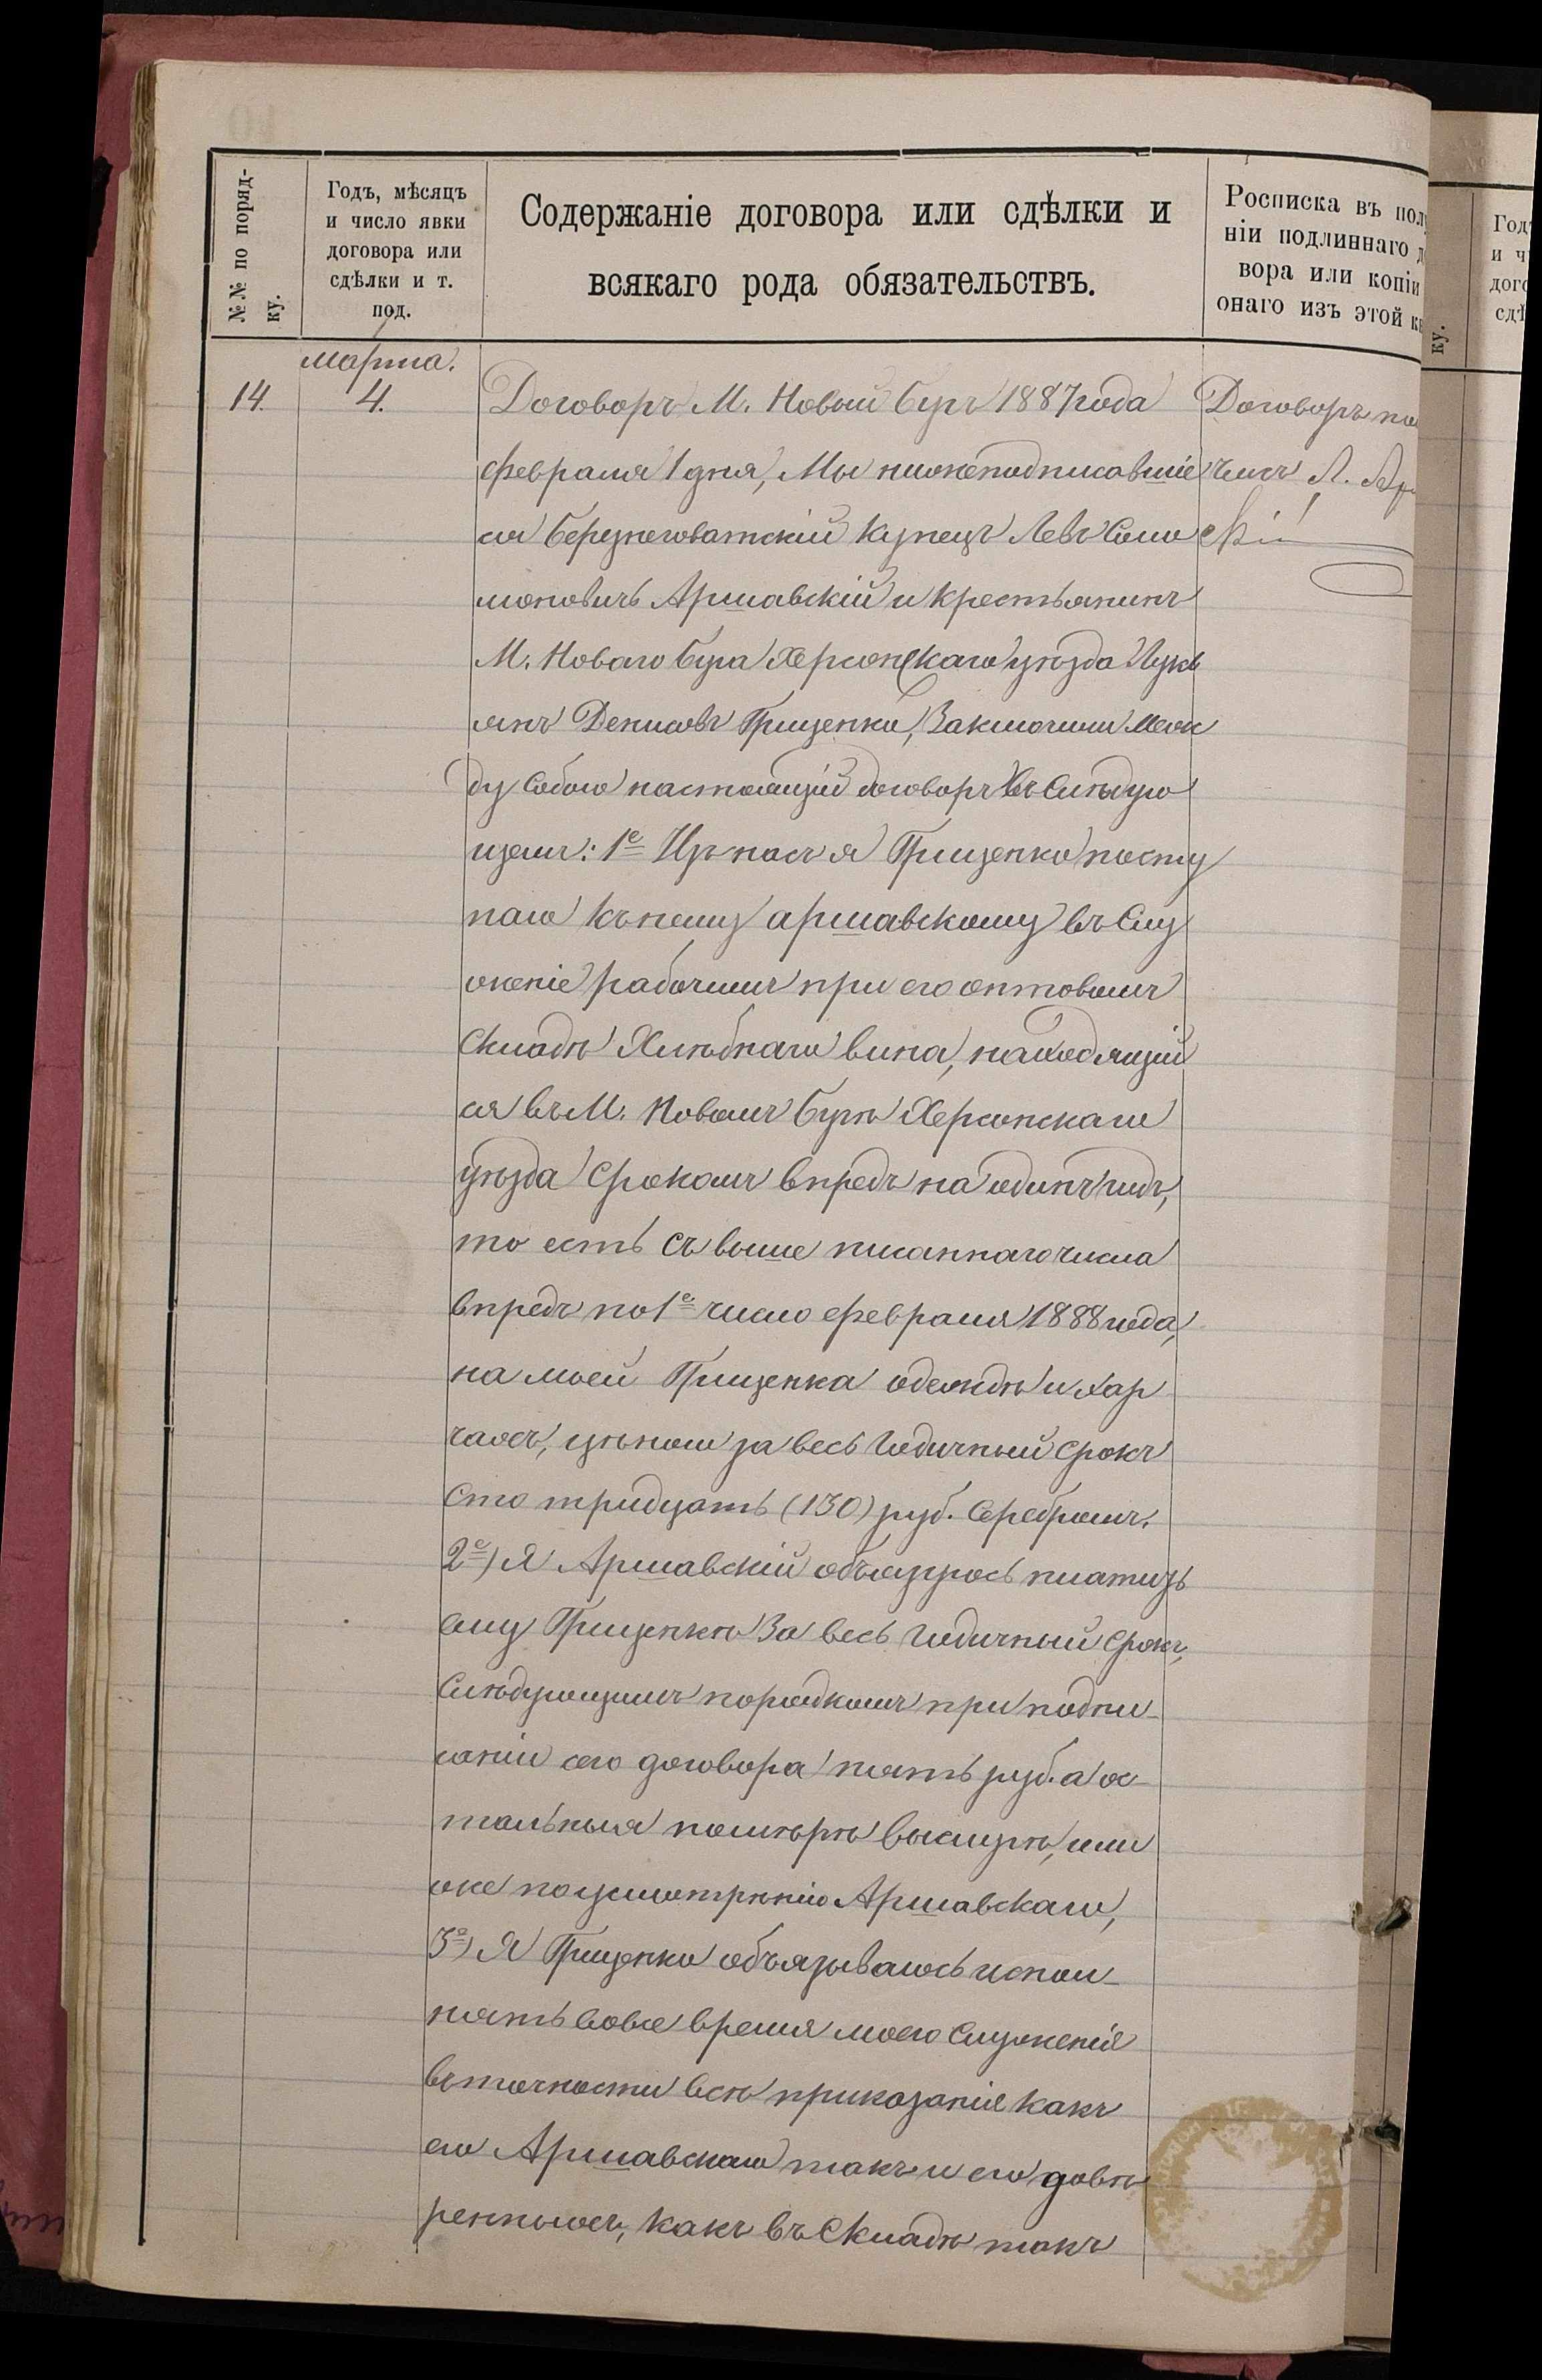 №№ по поряд-
ку.
Годъ, мѣсяцъ
и число явки
договора или
сдѣлки и т.
под.
Содержаніе договора или сдѣлки и
всякаго рода обязательствъ.
Росписка въ пол
ніи подлиннаго д
вора или копіи
онаго изъ этой к
Год
и ч
дого
сдѣ
ку.
марта.
14. 4.
Договоръ М. Новый Бугъ 1887 года
февраля 1 дня, Мы нижеподписавшіе
ся Березнеговатскій купецъ Левъ Соло
моновичъ Аршавскій и крестьянинъ
М. Новаго Буга Херсонскаго уѣзда Лукь
янъ Денисовъ Грищенко, Заключили Меж
ду собою настоящій договоръ въ слѣдую
щемъ: 1е Изъ насъ я Грищенко посту
паю къ нему Аршавскому въ слу
женіе рабочимъ при его оптовомъ
складѣ Хлѣбнаго вина, находящій
ся въ М. Новомъ Бугѣ Херсонскаго
уѣзда срокомъ впредъ на одинъ годъ,
то есть съ выше писаннаго числа
впредъ по 1е число февраля 1888 года,
на моей Грищенка одеждѣ и хар
чахъ, цѣною за весь годичный срокъ
сто тридцать (130) руб. серебромъ.
2е) Я Аршавскій обязуюсь платить
ему Грищенкѣ За весь годичный срокъ,
слѣдующимъ порядкомъ при подпи-
саніи сего договора пять руб. а ос-
тальныя помѣрѣ выслуги, или
же по усмотрѣнію Аршавскаго,
3е) Я Грищенко обязываюсь испол-
нять вовсе время моего служенія
въ точности всѣ приказанія какъ
его Аршавскаго такъ и его довѣ
ренныхъ, какъ въ складѣ такъ
Договоръ по
чилъ Л. Ар
скій